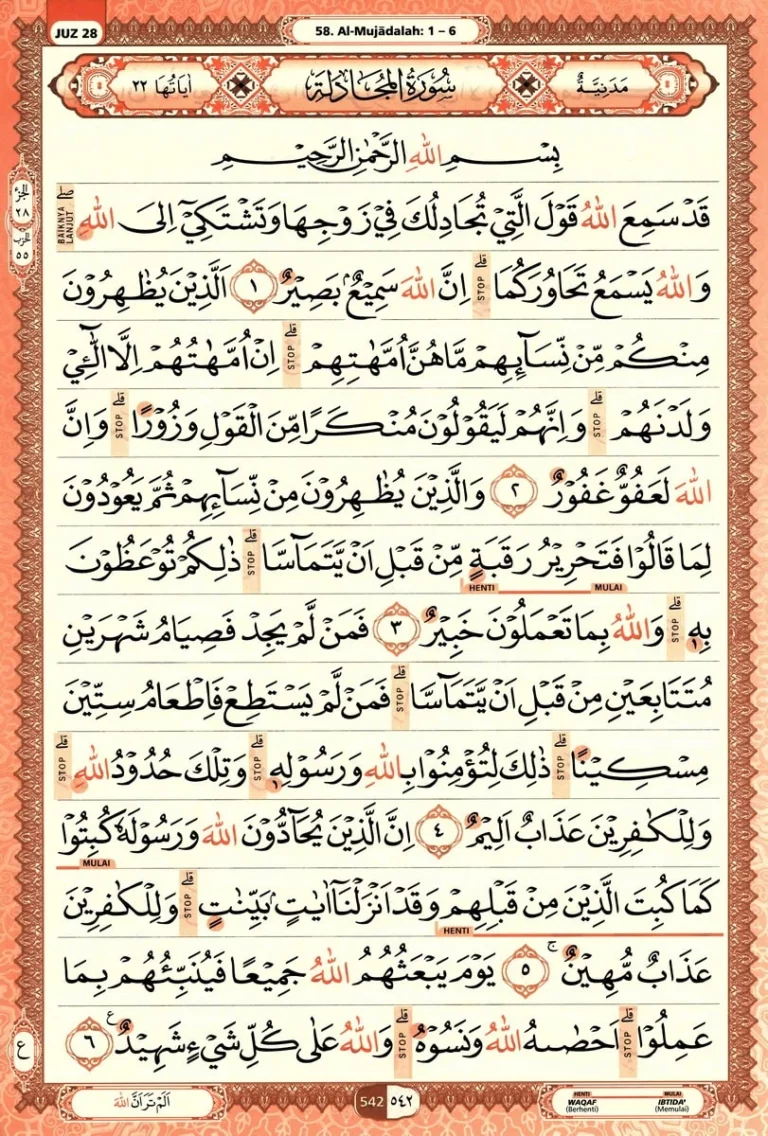 JUZ 28
58. Al-Mujādalah: 1 – 6
مَدَنِيَّةٌ
سُوْرَةُ الْمُجَادَلَةِ
اٰيَاتُهَا ٢٢
بِسْمِ اللّٰهِ الرَّحْمٰنِ الرَّحِيْمِ
قَدْ سَمِعَ اللّٰهُ قَوْلَ الَّتِيْ تُجَادِلُكَ فِيْ زَوْجِهَا وَتَشْتَكِيْٓ اِلَى اللّٰهِ ۖ
BAIKNYA LANJUT
وَاللّٰهُ يَسْمَعُ تَحَاوُرَكُمَاۗ اِنَّ اللّٰهَ سَمِيْعٌۢ بَصِيْرٌ ١ اَلَّذِيْنَ يُظٰهِرُوْنَ
STOP
مِنْكُمْ مِّنْ نِّسَاۤىِٕهِمْ مَّا هُنَّ اُمَّهٰتِهِمْۗ اِنْ اُمَّهٰتُهُمْ اِلَّا الّٰۤـِٔيْ
STOP
وَلَدْنَهُمْۗ وَاِنَّهُمْ لَيَقُوْلُوْنَ مُنْكَرًا مِّنَ الْقَوْلِ وَزُوْرًاۗ وَاِنَّ
STOP STOP
اللّٰهَ لَعَفُوٌّ غَفُوْرٌ ٢ وَالَّذِيْنَ يُظٰهِرُوْنَ مِنْ نِّسَاۤىِٕهِمْ ثُمَّ يَعُوْدُوْنَ
لِمَا قَالُوْا فَتَحْرِيْرُ رَقَبَةٍ مِّنْ قَبْلِ اَنْ يَّتَمَاۤسَّاۗ ذٰلِكُمْ تُوْعَظُوْنَ
STOP
HENTI MULAI
بِهٖۗ وَاللّٰهُ بِمَا تَعْمَلُوْنَ خَبِيْرٌ ٣ فَمَنْ لَّمْ يَجِدْ فَصِيَامُ شَهْرَيْنِ
STOP
مُتَتَابِعَيْنِ مِنْ قَبْلِ اَنْ يَّتَمَاۤسَّاۗ فَمَنْ لَّمْ يَسْتَطِعْ فَاِطْعَامُ سِتِّيْنَ
STOP
مِسْكِيْنًاۗ ذٰلِكَ لِتُؤْمِنُوْا بِاللّٰهِ وَرَسُوْلِهٖۗ وَتِلْكَ حُدُوْدُ اللّٰهِۗ
STOP STOP STOP
وَلِلْكٰفِرِيْنَ عَذَابٌ اَلِيْمٌ ٤ اِنَّ الَّذِيْنَ يُحَاۤدُّوْنَ اللّٰهَ وَرَسُوْلَهٗ كُبِتُوْا
MULAI
كَمَا كُبِتَ الَّذِيْنَ مِنْ قَبْلِهِمْ وَقَدْ اَنْزَلْنَآ اٰيٰتٍۢ بَيِّنٰتٍۗ وَلِلْكٰفِرِيْنَ
STOP
HENTI
عَذَابٌ مُّهِيْنٌۚ ٥ يَوْمَ يَبْعَثُهُمُ اللّٰهُ جَمِيْعًا فَيُنَبِّئُهُمْ بِمَا
عَمِلُوْاۗ اَحْصٰىهُ اللّٰهُ وَنَسُوْهُۗ وَاللّٰهُ عَلٰى كُلِّ شَيْءٍ شَهِيْدٌ ࣖ ٦
STOP STOP
الجزء
٢٨
الحزب
٥٥
ع
اَلَمْ تَرَ اَنَّ اللّٰهَ
542 ٥٤٢
HENTI MULAI
WAQAF IBTIDA'
(Berhenti) (Memulai)